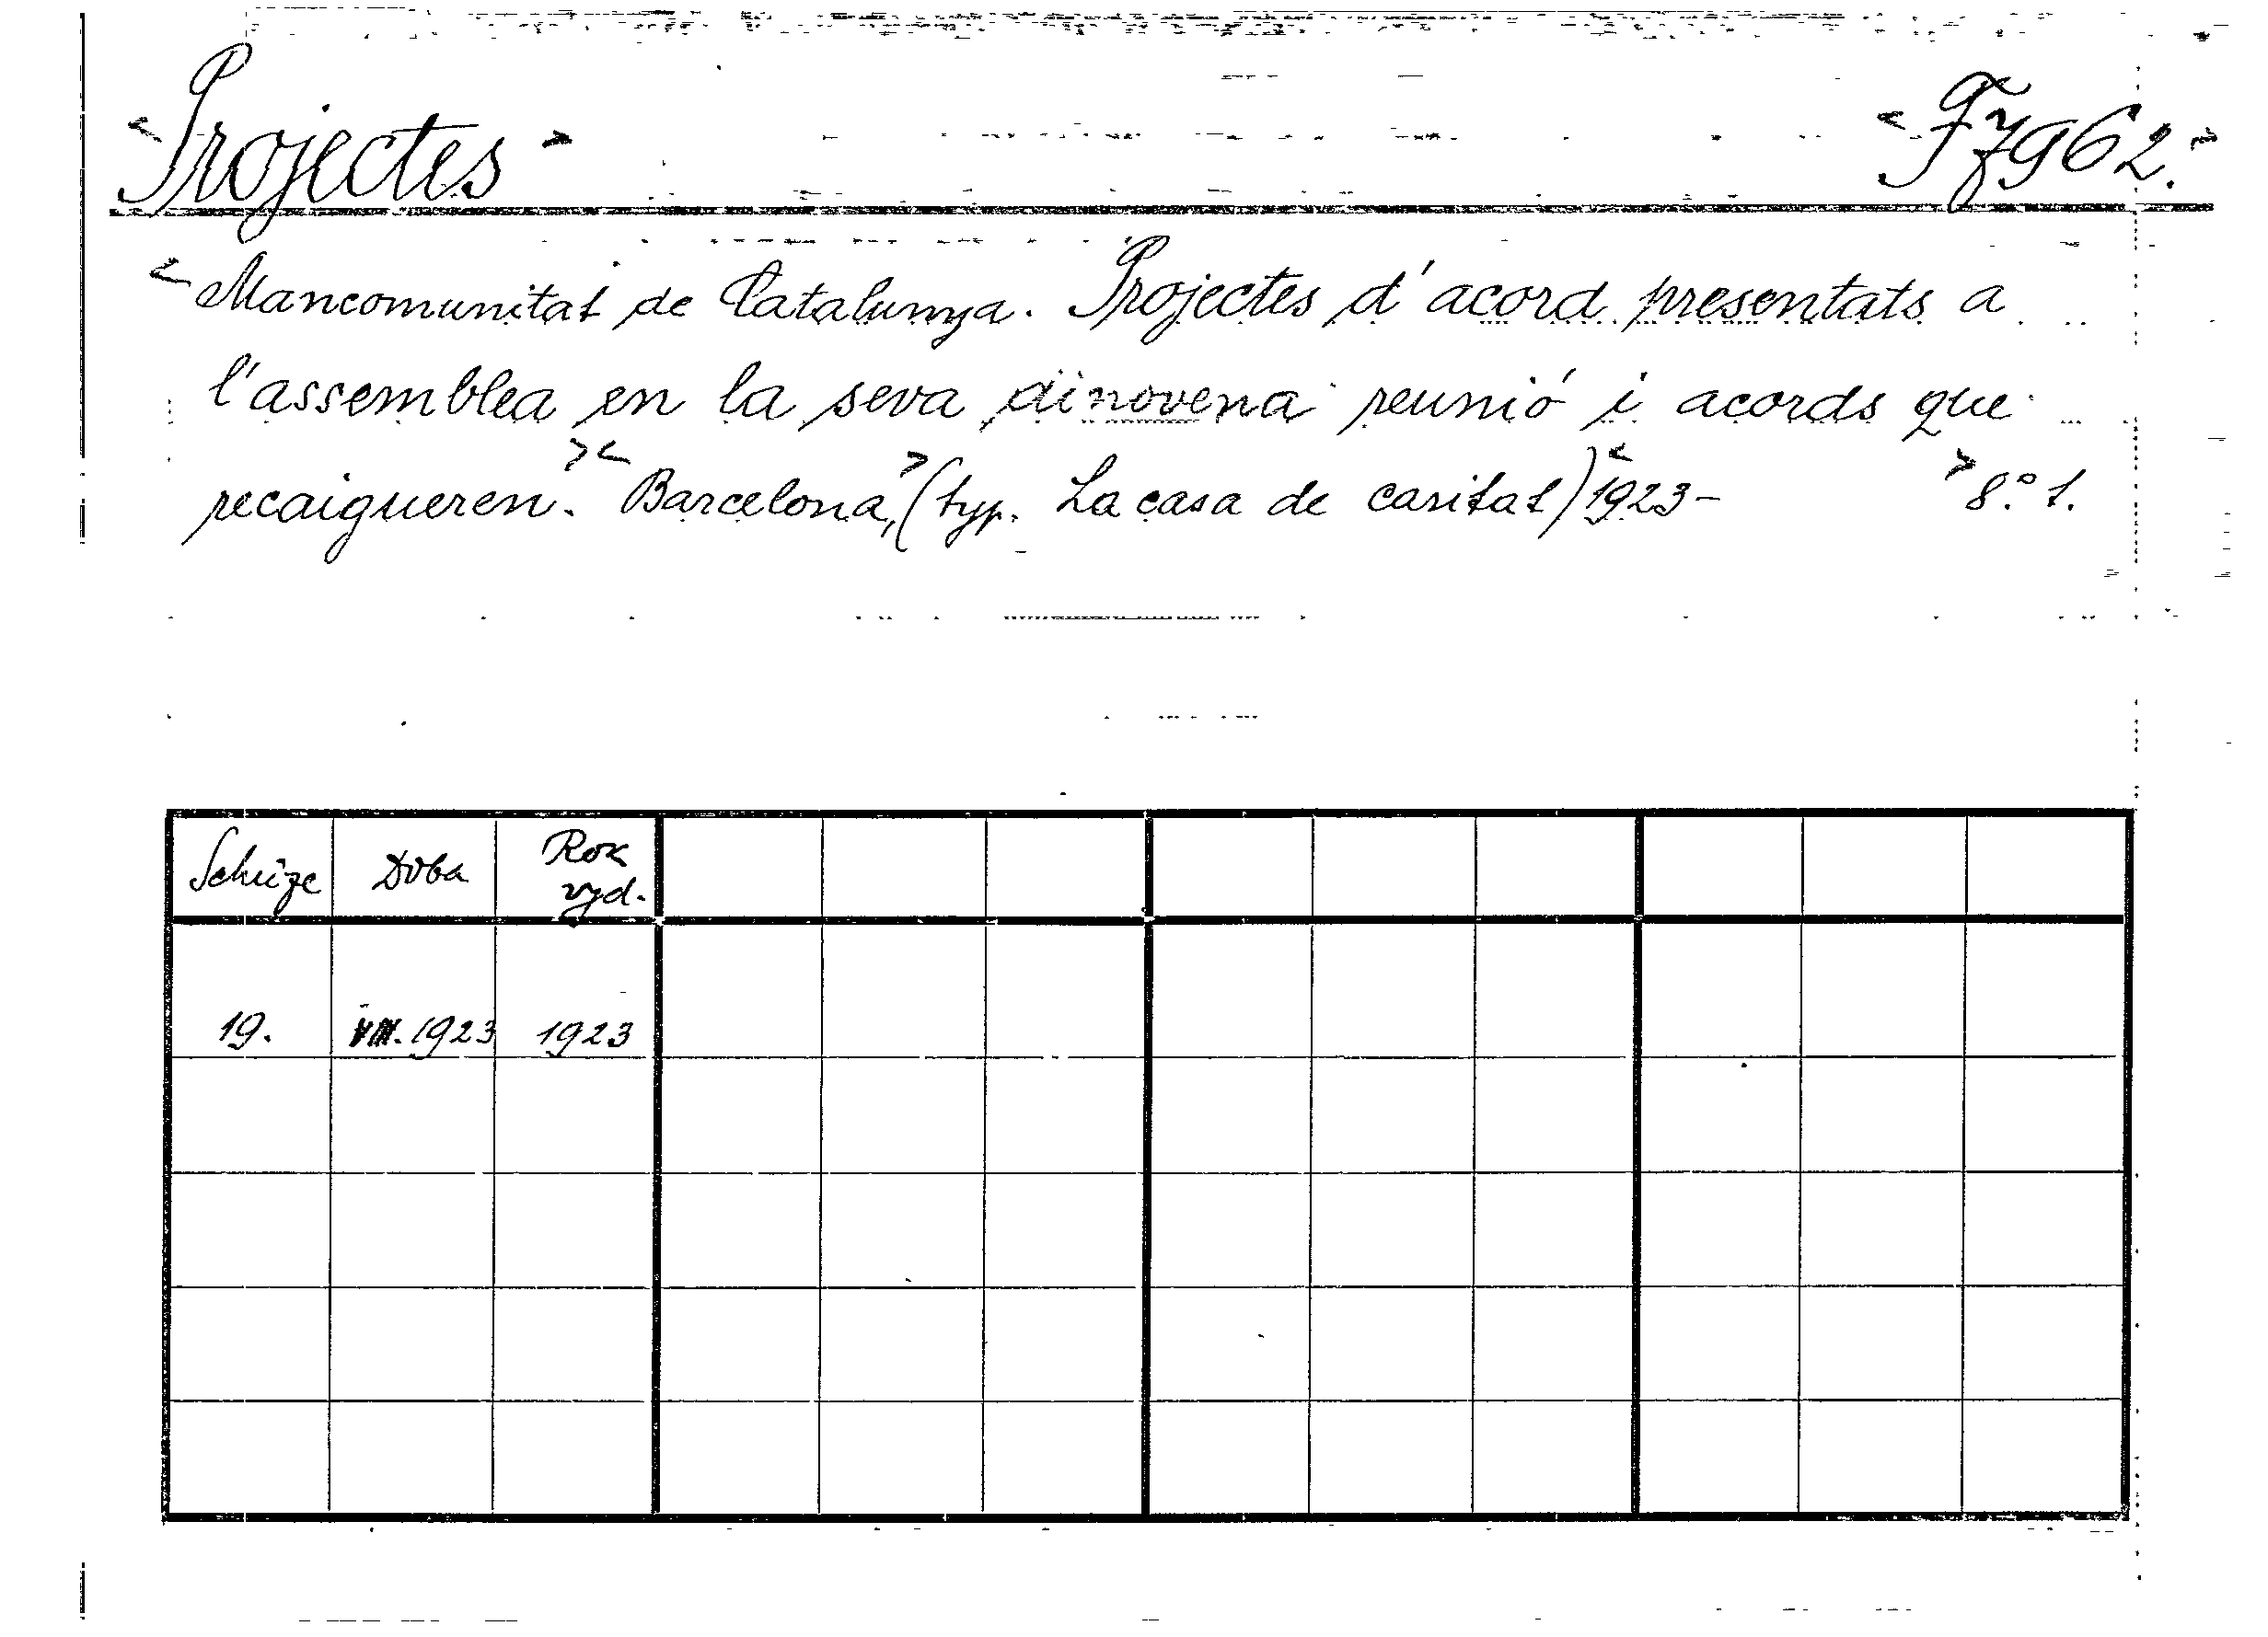 <Projectes> <F 7962.>
<Mancomunitat de Catalunya. Projectes d'acord presentats a
l'assemblea en la seva dinovena reunió i acords que
recaigueren.>< Barcelona,>(typ. La casa de caritat)<1923- >8.° 1.
Schůze Doba Rok vyd.
19. VIII. 1923 1923